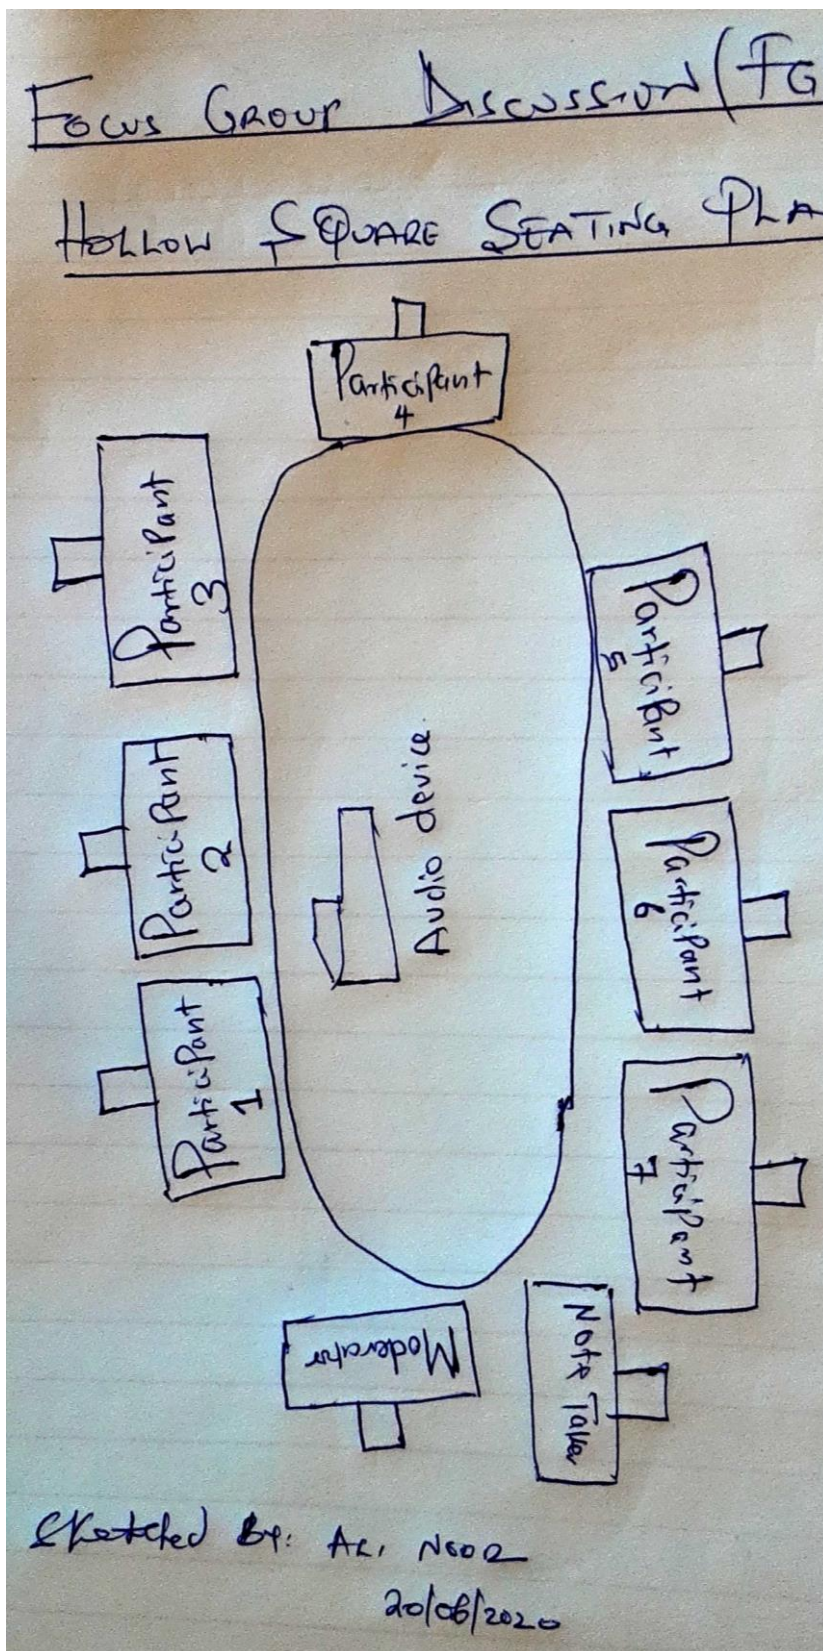 FOCUS GROUP DISCUSSION (FG
HOLLOW SQUARE SEATING PLA
Participant
4
Participant
3
Participant
5
Participant
2
Audio device
Participant
6
Participant
1
Participant
7
Moderator
Note Taker
Sketched By: ALI NOOR
20/06/2020